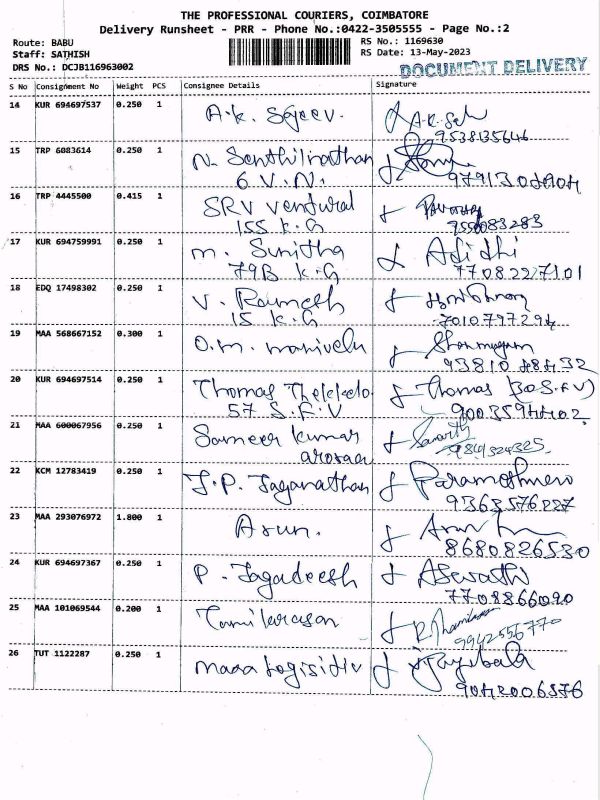 THE PROFESSIONAL COURIERS, COIMBATORE
Delivery Runsheet - PRR - Phone No.:0422-3505555 - Page No.:2
Route: BABU RS No.: 1169630
Staff: SATHISH RS Date: 13-May-2023
DRS No.: DCJB116963002 DOCUMENT DELIVERY
S No Consignment No Weight PCS Consignee Details Signature
14 KUR 694697537 0.250 1 A.k. Sajeev.
9538135646
15 TRP 6083614 0.250 1 N. Senthilnathan
6 V.N.
16 TRP 4445500 0.415 1 SRV
155 K.G
17 KUR 694759991 0.250 1 m. Sunitha Adidhi
79B K.G 7708227101
18 EDQ 17498302 0.250 1 V. Ramesh
15 K.G 7010797294
19 MAA 568667152 0.300 1 O.m. manivelu Shanmugam
20 KUR 694697514 0.250 1 Thomas Thekkedo Thomas
57 S.F.V 9003594402
21 MAA 600067956 0.250 1 Sameer kumar
22 KCM 12783419 0.250 1 J.P. Jaganathan
9363576227
23 MAA 293076972 1.800 1 Arun. Arun
8680826530
24 KUR 694697367 0.250 1 P. Jagadeesh Aswathi
7708866090
25 MAA 101069544 0.200 1 Tamilarasan
9942556770
26 TUT 1122287 0.250 1 maaa Logisitiv
9042006576